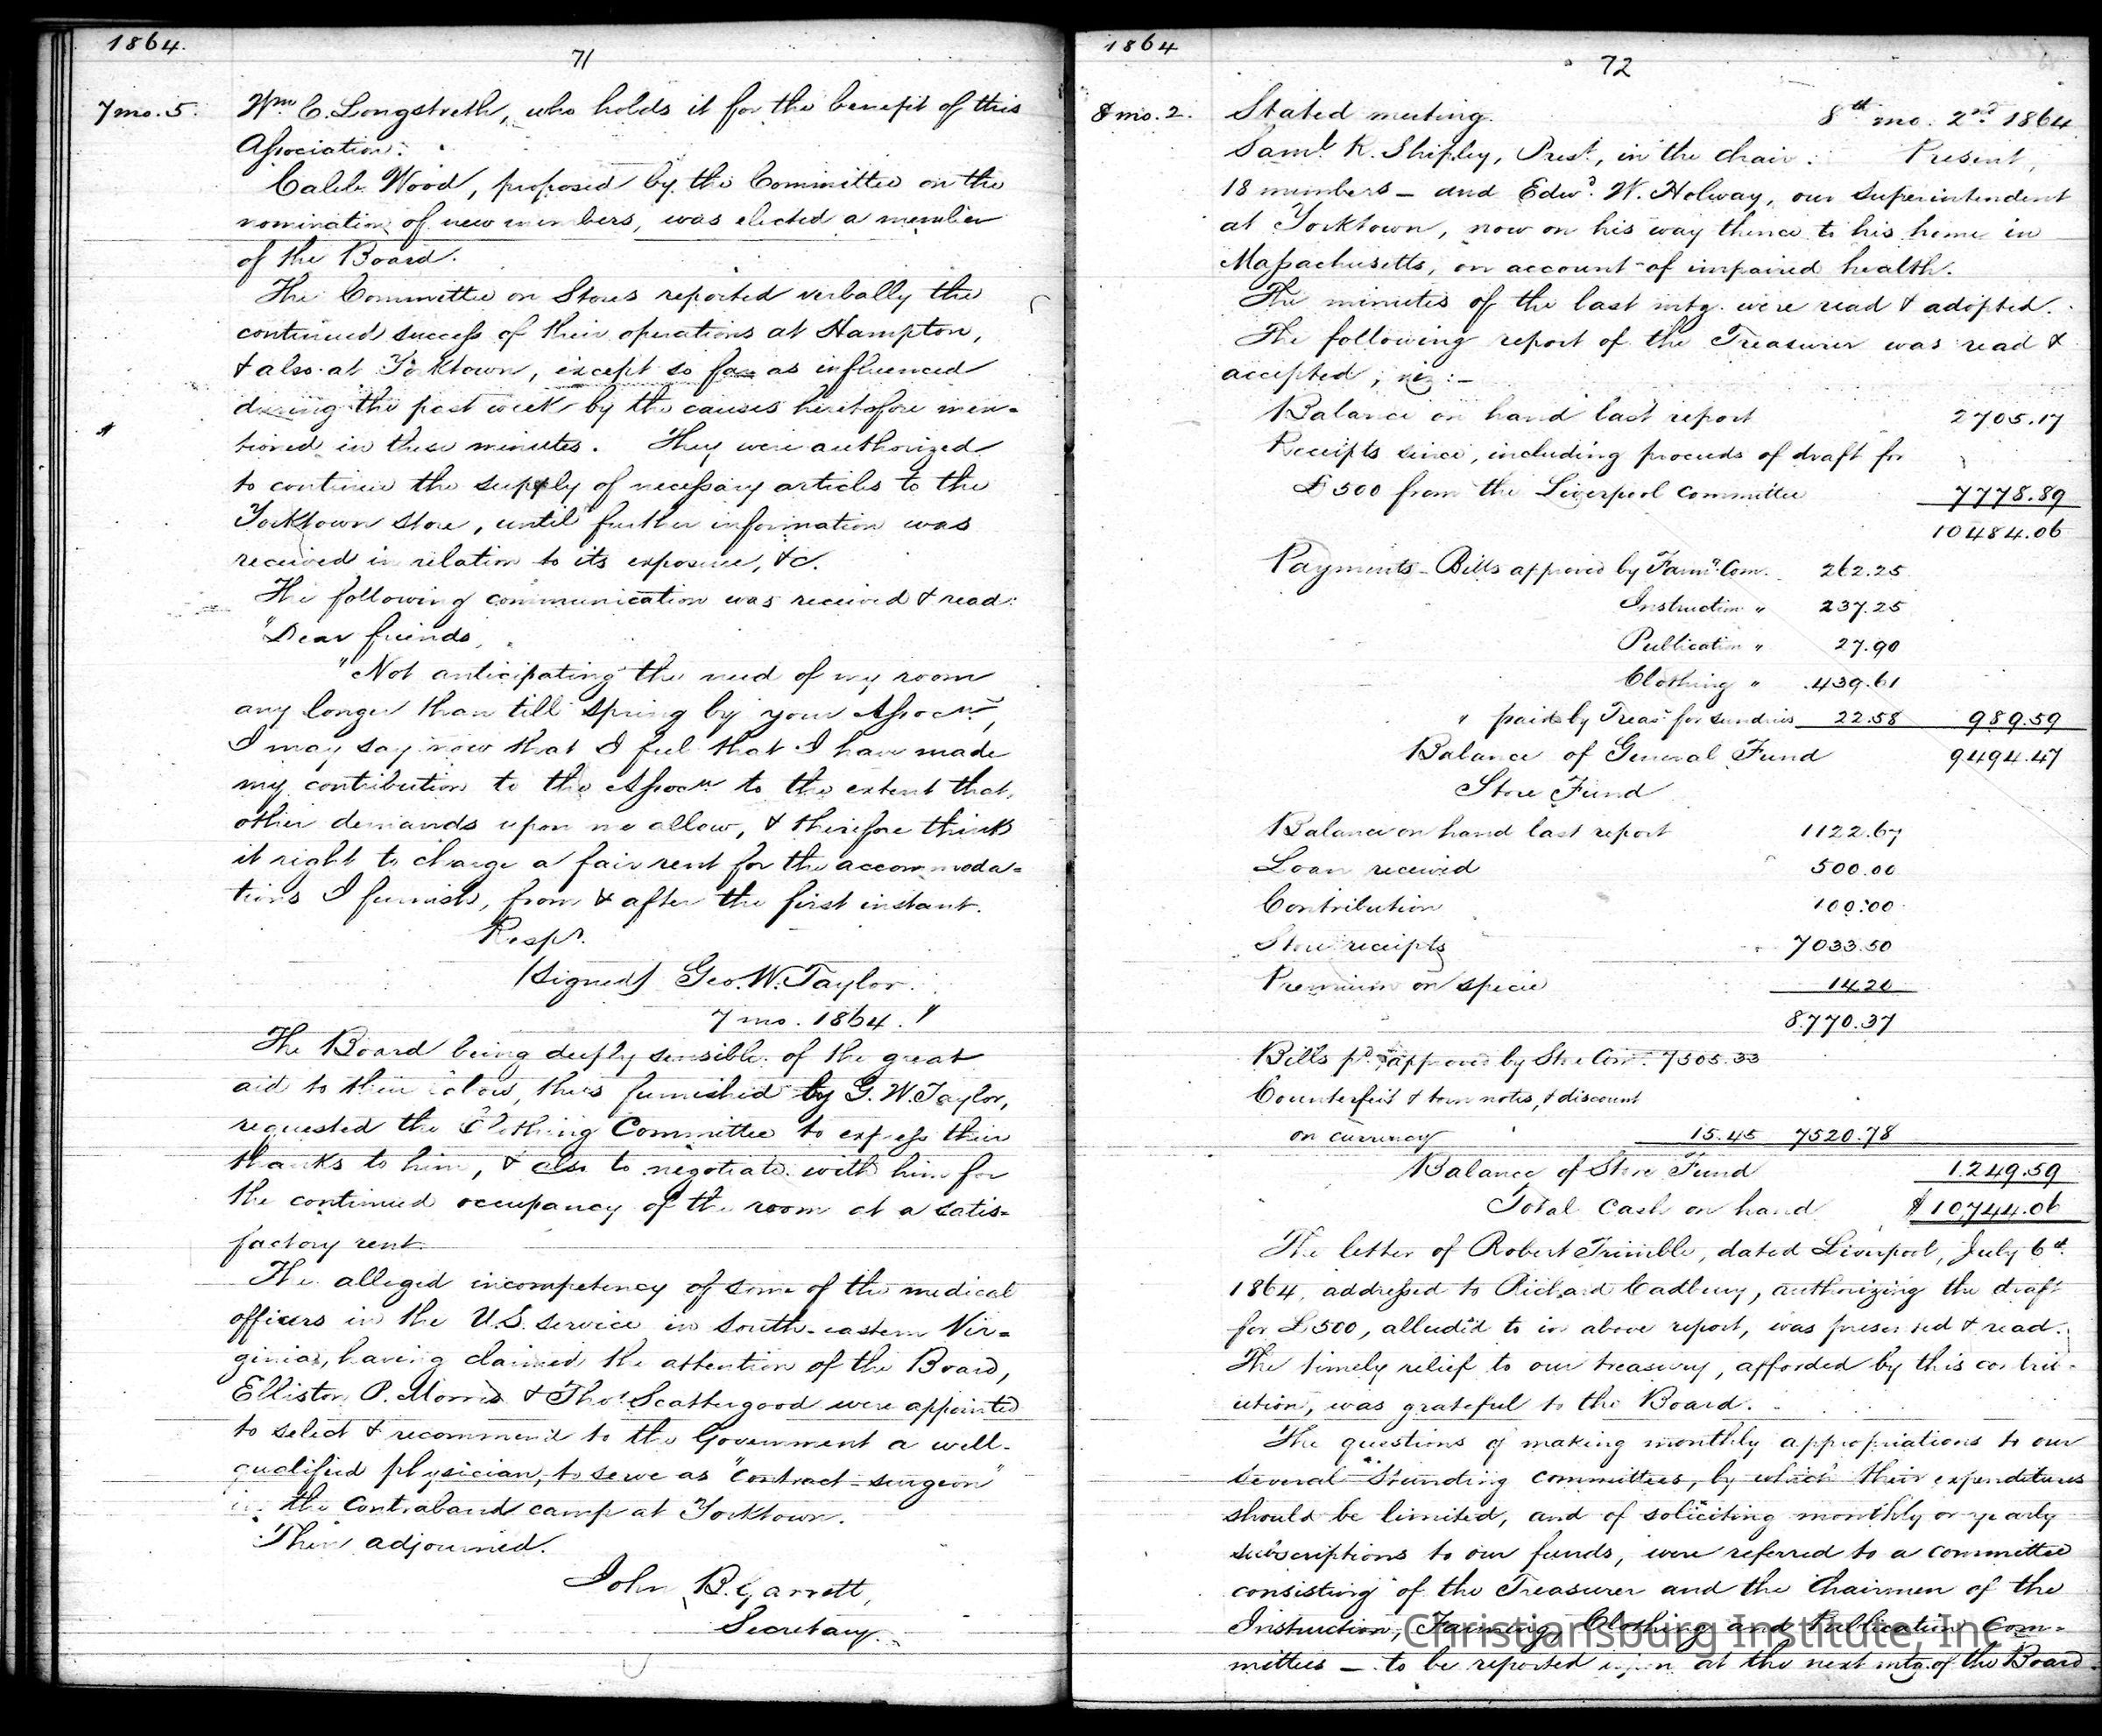 1864.
71
7 mo. 5.
Wm C. Longstreth, who holds it for the benefit of this
Association.
Caleb Wood, proposed by the Committee on the
nomination of new members, was elected a member
of the Board.
The Committee on Stores reported verbally the
continued success of their operations at Hampton,
& also at Yorktown, except so far as influenced
during the past week by the causes heretofore men=
tioned in these minutes. They were authorized
to continue the supply of necessary articles to the
Yorktown store, until further information was
received in relation to its exposure, &c.
The following communication was received & read:
"Dear friends,
"Not anticipating the need of my room
any longer than till spring by your Assocn,
I may say now that I feel that I have made
my contribution to the Assocn to the extent that
other demands upon me allow, & therefore think
it right to charge a fair rent for the accommoda=
tions I furnish, from & after the first instant.
Respy.
(Signed) Geo. W. Taylor.
7 mo. 1864."
The Board being deeply sensible of the great
aid to their labors, thus furnished by G. W. Taylor,
requested the Clothing Committee to express their
thanks to him, & also to negotiate with him for
the continued occupancy of the room at a satis=
factory rent.
The alleged incompetency of some of the medical
officers in the U.S. service in South-eastern Vir=
ginia, having claimed the attention of the Board,
Elliston P. Morris & Thos Scattergood were appointed
to select & recommend to the Government a well-
qualified physician, to serve as "contract-surgeon"
in the contraband camp at Yorktown.
Then adjourned.
John B. Garrett,
Secretary.
1864
72
8 mo. 2.
Stated meeting. 8th mo. 2nd 1864
Saml R. Shipley, Prest, in the chair. Present,
18 members – and Edwd. W. Holway, our superintendent
at Yorktown, now on his way thence to his home in
Massachusetts, on account of impaired health.
The minutes of the last mtg. were read & adopted.
The following report of the Treasurer was read &
accepted, viz:–
Balance on hand last report 2705.17
Receipts since, including proceeds of draft for
£500 from the Liverpool Committee 7778.89
10484.06
Payments – Bills approved by Farmg Com. 262.25
Instruction " 237.25
Publication " 27.90
Clothing " 439.61
" paid by Treasr for sundries 22.58 989.59
Balance of General Fund 9494.47
Store Fund
Balance on hand last report 1122.67
Loan received 500.00
Contribution 100.00
Store receipts 7033.50
Premium on specie 14.20
8770.37
Bills pd approved by Store Com. 7505.33
Counterfeit & torn notes, & discount
on currency 15.45 7520.78
Balance of Store Fund 1249.59
Total Cash on hand $10,744.06
The letter of Robert Trimble, dated Liverpool, July 6th.
1864, addressed to Richard Cadbury, authorizing the draft
for £500, allud'd to in above report, was presented & read.
The timely relief to our treasury, afforded by this contrib-
ution, was grateful to the Board.
The questions of making monthly appropriations to our
several Standing committees, by which their expenditures
should be limited, and of soliciting monthly or yearly
subscriptions to our funds, were referred to a committee
consisting of the Treasurer and the Chairmen of the
Instruction, Farming, Clothing and Publication Com=
mittees – to be reported upon at the next mtg. of the Board.
Christiansburg Institute, Inc.